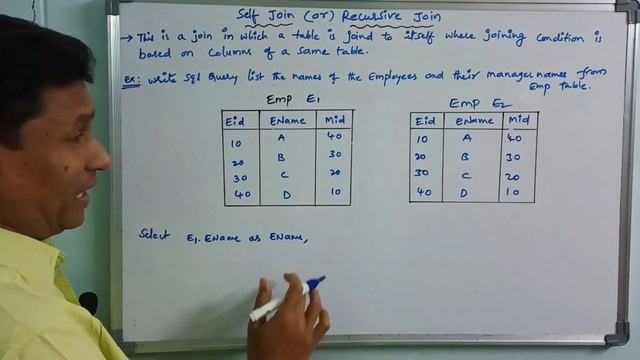 Self Join (or) Recursive Join
→ This is a join in which a table is joind to itself where joining condition is
based on columns of a same table.
Ex: write Sql Query list the names of the Employees and their manager names from
Emp table.
Emp E1
Eid EName Mid
10 A 40
20 B 30
30 C 20
40 D 10
Emp E2
Eid eName Mid
10 A 40
20 B 30
30 C 20
40 D 10
Select E1.EName as EName,